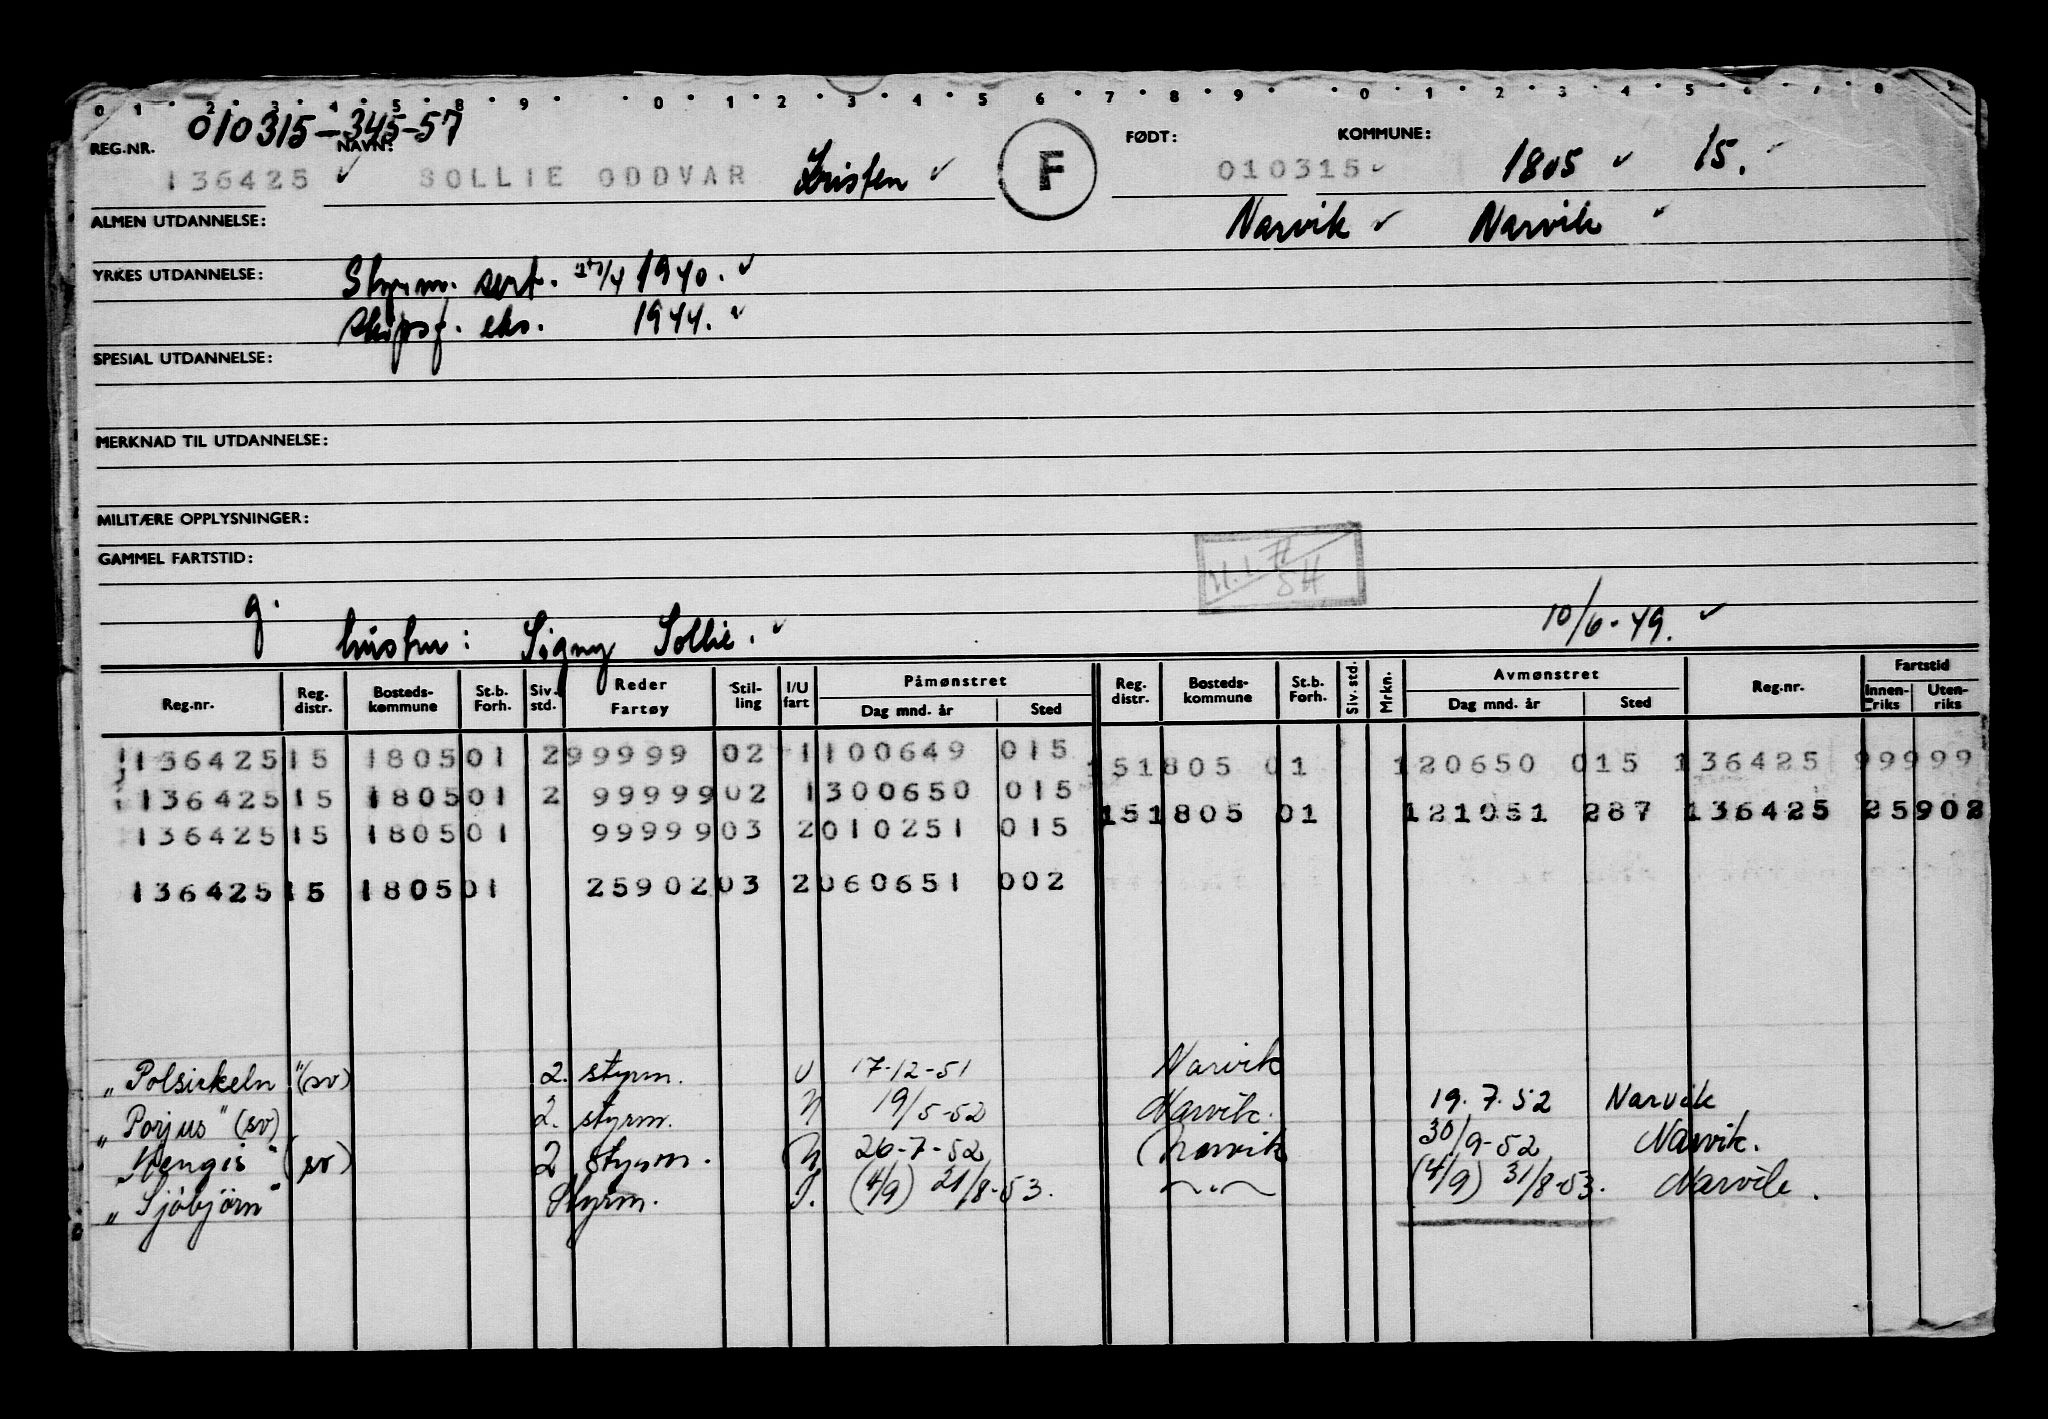 0 1 2 3 4 5 8 9 0 1 2 3 4 5 6 7 8 9 0 1 2 3 4 5 6 7 8 9
010315-345-57
REG.NR. NAVN: FØDT: KOMMUNE:
136425 ✓ SOLLIE ODDVAR Kristen ✓ F 010315 ✓ 1805 ✓ 15.
ALMEN UTDANNELSE: Narvik ✓ Narvik ✓
YRKES UTDANNELSE: Styrm. sert. /4 1940. ✓
skipsf. eks. 1944. ✓
SPESIAL UTDANNELSE:
MERKNAD TIL UTDANNELSE:
MILITÆRE OPPLYSNINGER:
GAMMEL FARTSTID:
g. hustru: Signy Sollie. ✓ 10/6-49. ✓
Reg.nr. Reg. distr. Bosteds-kommune St.b. Forh. Siv. std. Reder Fartøy Stil-ling I/U fart Påmønstret Dag mnd. år Sted Reg. distr. Bosteds-kommune St.b. Forh. Siv. std. Mrkn. Avmønstret Dag mnd. år Sted Reg.nr. Fartstid Innen-riks Uten-riks
136425 15 1805 01 2 99999 02 1 100649 015 15 1805 01 120650 015 136425 99999
136425 15 1805 01 2 99999 02 1 300650 015 15 1805 01 121051 287 136425 25902
136425 15 1805 01 99999 03 2 010251 015
136425 15 1805 01 25902 03 2 060651 002
"Polsirkeln" (sv) 2. styrm. U 17-12-51 Narvik
"Porjus" (sv) 2. styrm. U 19/5-52 Narvik. 19.7.52 Narvik
"Kengis" (sv) 2 styrm. U 26-7-52 Narvik 30/9-52 Narvik.
"Sjöbjörn" Styrm. I. (4/9) 21/8-53. (4/9) 31/8-53. Narvik.